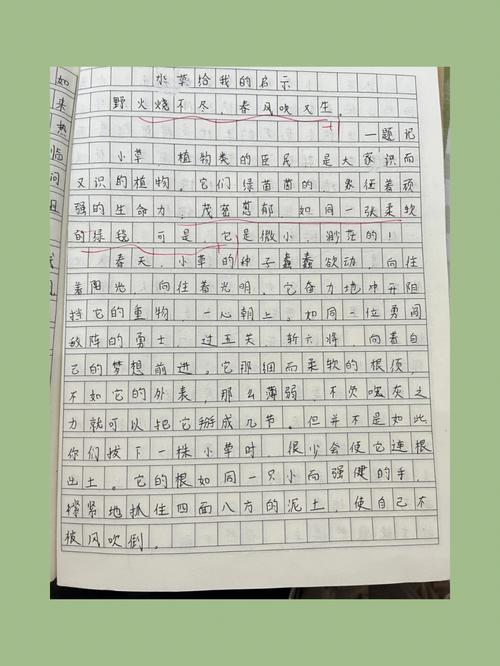 如
来
热
临
问
水草给我的启示
野火烧不尽,春风吹又生。
—题记
小草,植物类的臣民,是大家识而
又识的植物。它们绿茵茵的,象征着顽
强的生命力,茂密葱郁,如同一张柔软
的绿毯。可是,它是微小、渺茫的!
春天,小草的种子蠢蠢欲动,向住
着阳光,向住着光明。它奋力地冲开阳
挡它的重物,一心朝上。如同一位勇闯
敌阵的勇士,过五关,斩六将,向着自
己的梦想前进。它那细而柔软的根须,
不如它的外表,那么薄弱,不费吹灰之
力就可以把它掰成几节。但并不是如此,
你们拔下一株小草时,很少会使它连根
出土。它的根如同一只小而强健的手,
紧紧地抓住四面八方的泥土,使自己不
被风吹倒。